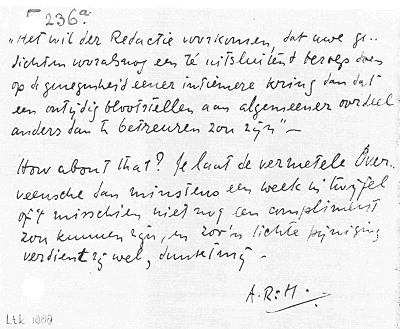 236a
"Het wil der Redactie voorkomen, dat uwe ge-
dichten vooralsnog een té uitsluitend beroep doen
op de genegenheid eener intiemere kring dan dat
een ontijdig blootstellen aan algemeener oordeel
anders dan te betreuren zou zijn" —
How about that? Je laat de vermetele Over-
veensche dan minstens een week in twijfel
of 't misschien niet nog een compliment
zou kunnen zijn, en zoo'n lichte pijniging
verdient zij wel, dunkt mij —
A.R.H.
Ltk 1888